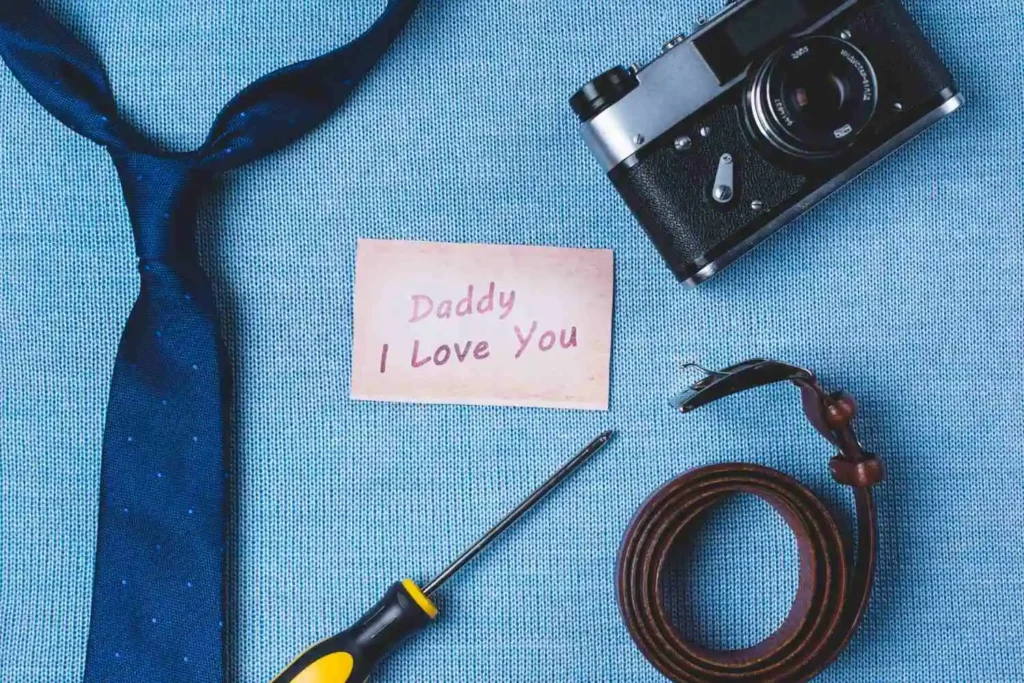 Daddy
I Love You